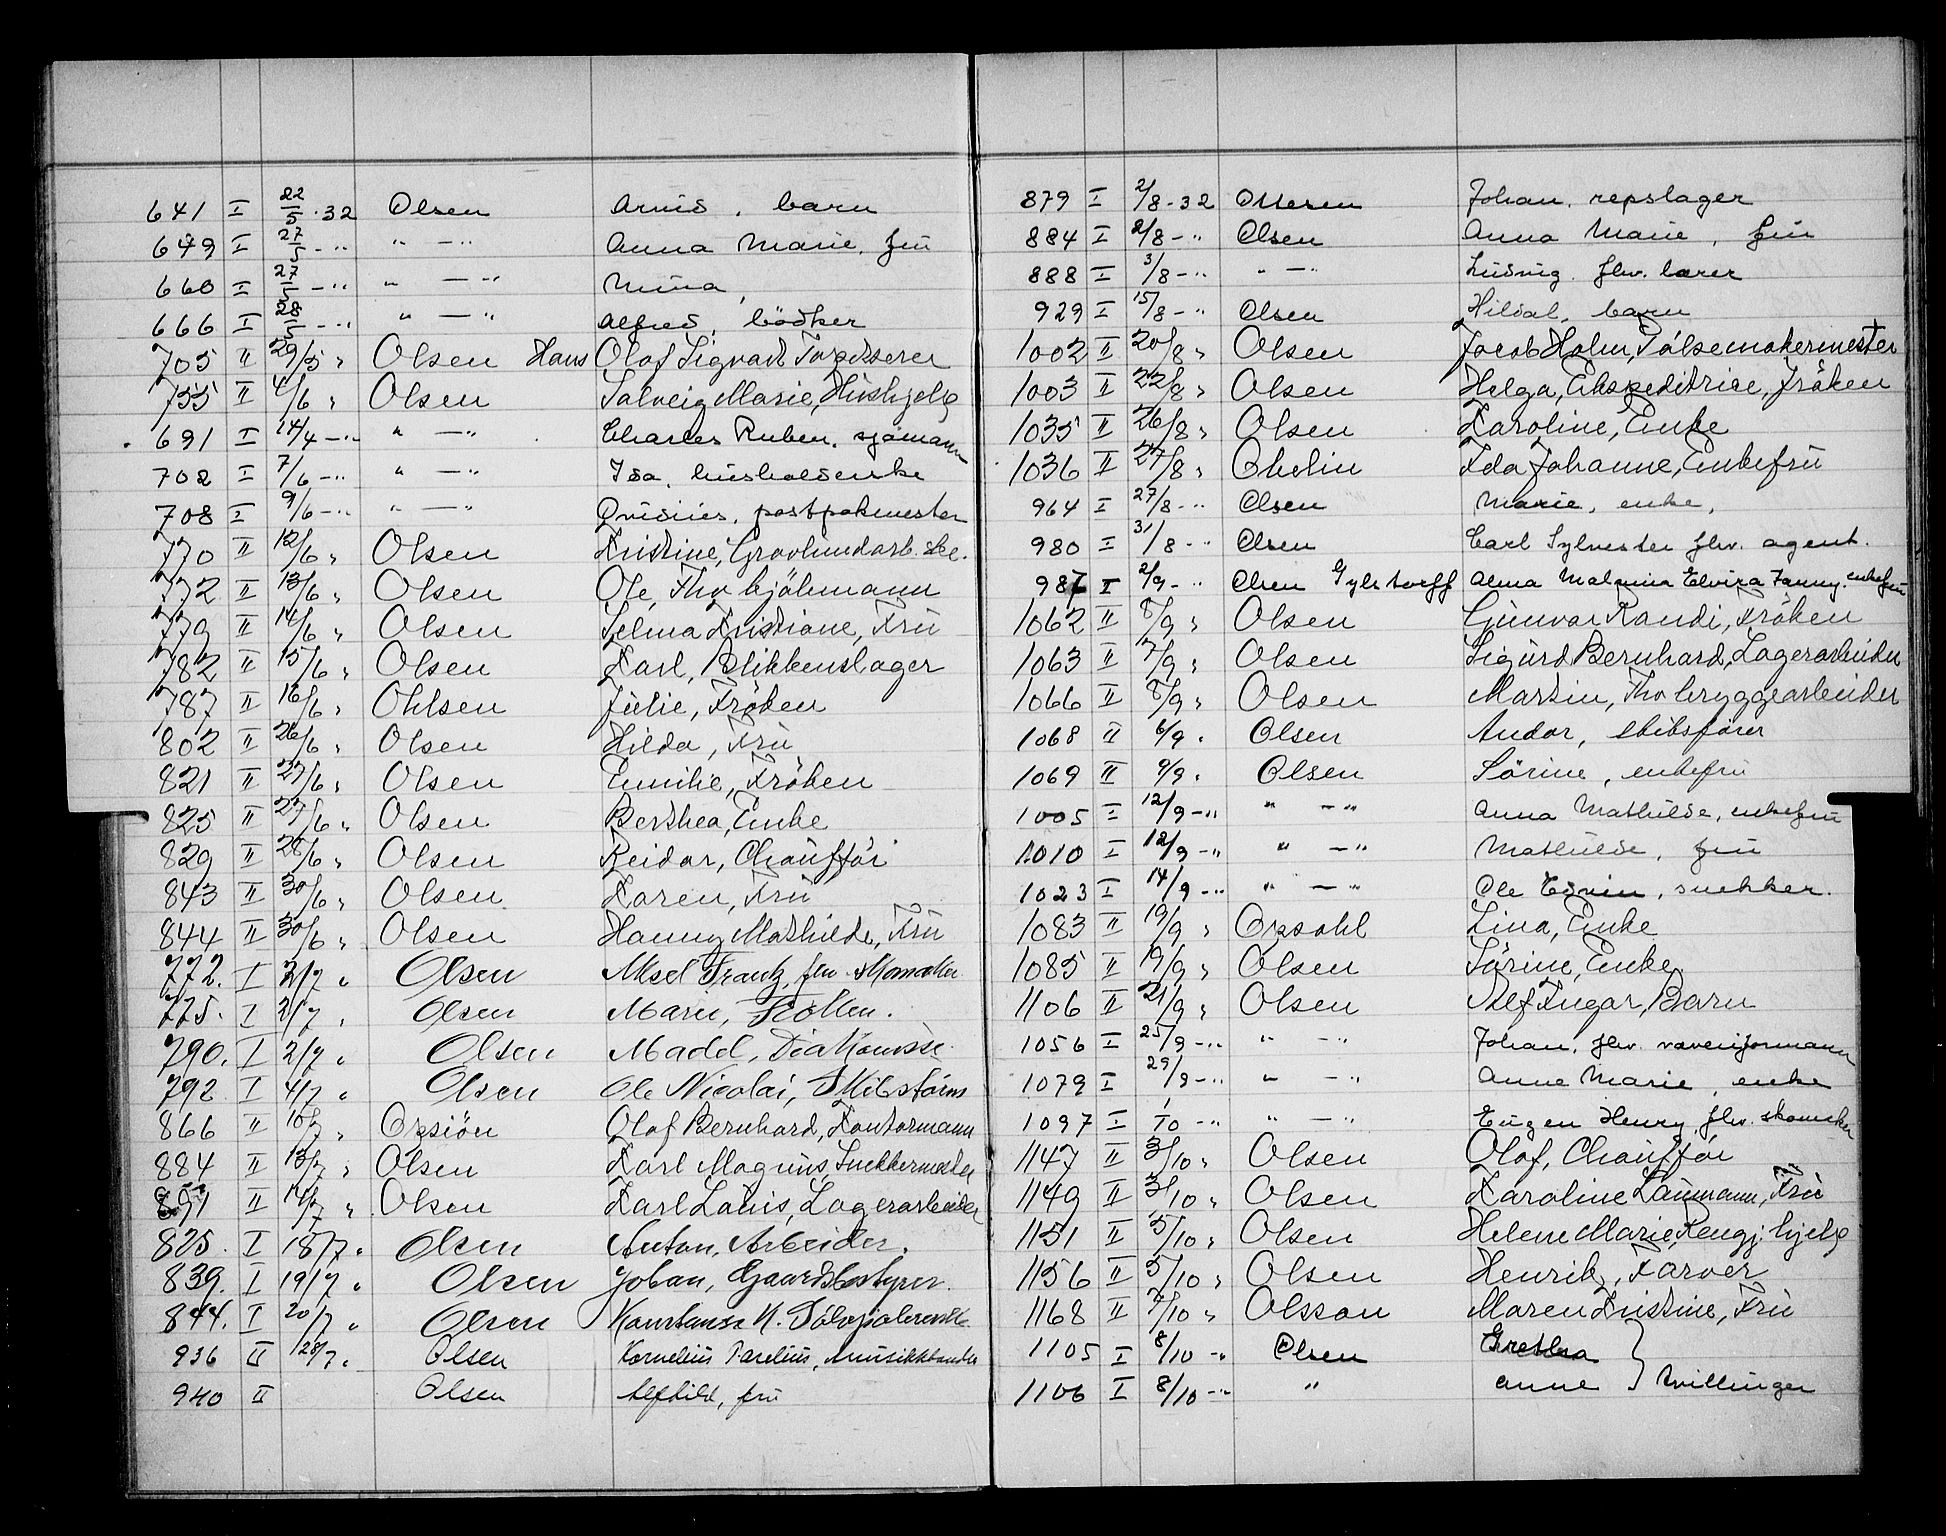 641 I 22/5 - 32 Olsen Arnid, barn
649 I 27/5 - " " — " Anna Marie, fru
660 I 27/5 - " " — " Nina,
666 I 28/5 - " " — " Alfred, bödker
705 II 29/5 " Olsen Hans Olaf Sigvart
735 II 4/6 " Olsen Solveig Marie, Hushjelp
691 I 14/4 - " " — " Charles Ruben, sjömann
702 I 7/6 - " " — " Ida, husholderske
708 I 9/6 - " " — " postpakmester
770 II 12/6 " Olsen Kristine,
772 II 13/6 " Olsen Ole, Fhv.
779 II 14/6 " Olsen Selma Kristiane, Fru
782 II 15/6 " Olsen Karl, Blikkenslager
787 II 16/6 " Ohlsen Julie, Fröken
802 II 26/6 " Olsen Hilda, Fru
821 II 27/6 " Olsen Emilie, Fröken
825 II 27/6 " Olsen Berthea, Enke
829 II 28/6 " Olsen Reidar, Chaufför
843 II 30/6 " Olsen Karen, Fru
844 II 30/6 " Olsen Hanny Mathilde, Fru
772. I 2/7 " Olsen Aksel Frantz, fhv. skomaker
775. I 2/7 " Olsen Marie, Fröken.
790. I 2/7 " Olsen Madel, Diakonisse.
792 I 4/7 " Olsen Ole Nicolai, Skibsförer
866 II 10/7 " Opsiön Olaf Bernhard, Kontormann
884 II 13/7 " Olsen Karl Magnus Snekkermester
891 II 14/7 " Olsen Karl Louis, Lagerarbeider
825. I 18/7 " Olsen Anton, Arbeider.
839. I 19/7 " Olsen Johan, Gaardsbestyrer.
844. I 20/7 " Olsen Konstanse M. Sölvpolererske
936 II 28/7 " Olsen Kornelius Parelius, musikkhandler
940 II Olsen Alfhild, fru
879 I 2/8 - 32 Ottesen Johan, repslager
884 I 2/8 - " Olsen Anna Marie, fru
888 I 3/8 - " " — " Ludvig. fhv. lærer
929 I 15/8 - " Olsen barn
1002 II 20/8 " Olsen Jacob Holm, Pölsemakermester
1003 II 22/8 " Olsen Helga, Ekspeditrise, Fröken
1035 II 26/8 " Olsen Karoline, Enke
1036 II 27/8 " Ohelin Ida Johanne, Enkefru
964 I 27/8 - " Olsen Marie, enke,
980 I 31/8 - " Olsen Carl Sylvester fhv. agent.
987 I 2/9 - " Olsen Gylstorff Alma Malmina Elvira Fanny, enkefru
1062 II 8/9 " Olsen Gunvor Randi, Fröken
1063 II 7/9 " Olsen Sigurd Bernhard, Lagerarbeider
1066 II 8/9 " Olsen Martin, Fhv bryggearbeider
1068 II 6/9 " Olsen Andor, skibsförer
1069 II 9/9 " Olsen Sörine, enkefru
1005 I 12/9 - " " — " Anna Mathilde, enkefru
1010 I 12/9 - " " — " Mathilde, fru
1023 I 14/9 - " " — " Ole Edvin, snekker.
1083 II 19/9 " Opsahl Lina, Enke
1085 II 19/9 " Olsen Sörine, Enke
1106 II 21/9 " Olsen Alf Ingar, Barn
1056 I 25/9 - " " — " Johan, fhv. vaveriformann
1079 I 29/9 - " " — " Anne Marie, enke
1097 I 1/10 - " " — " Eugen Henry, fhv. skomaker
1147 II 3/10 " Olsen Olaf, Chaufför
1149 II 3/10 " Olsen Karoline Laumann, Fru
1151 II 5/10 " Olsen Helene Marie, Rengj. hjelp
1156 II 5/10 " Olsen Henrik, Farver
1168 II 7/10 " Olsson Maren Kristine, Fru
1105 I 8/10 - " Olsen Grethea
1106 I 8/10 - " " Anne } tvillinger